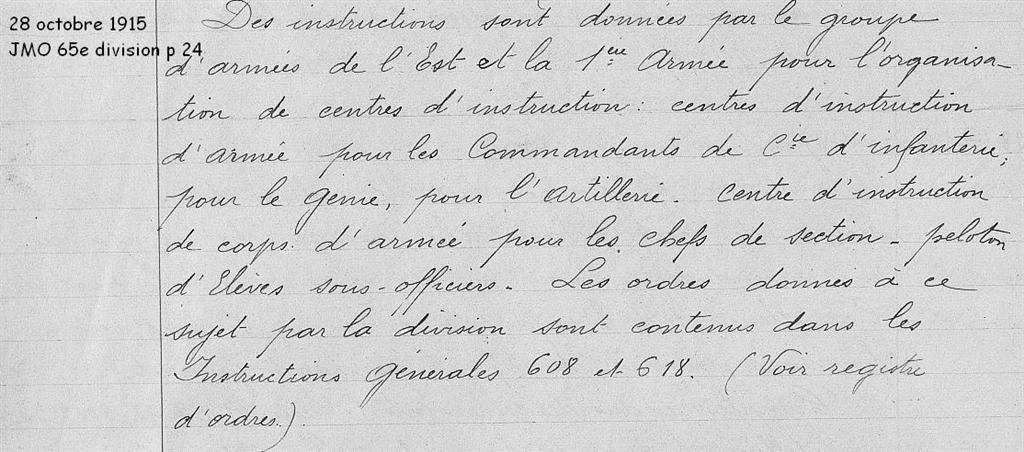 28 octobre 1915
JMO 65e division p 24
Des instructions sont données par le groupe
d'armées de l'Est et la 1ère Armée pour l'organisa-
tion de centres d'instruction: centres d'instruction
d'armée pour les Commandants de Cie d'infanterie;
pour le Génie, pour l'artillerie. Centre d'instruction
de corps d'armée pour les chefs de section - peloton
d'Elèves sous-officiers - Les ordres donnés à ce
sujet par la division sont contenus dans les
Instructions Générales 608 et 618. (Voir registre
d'ordres.)